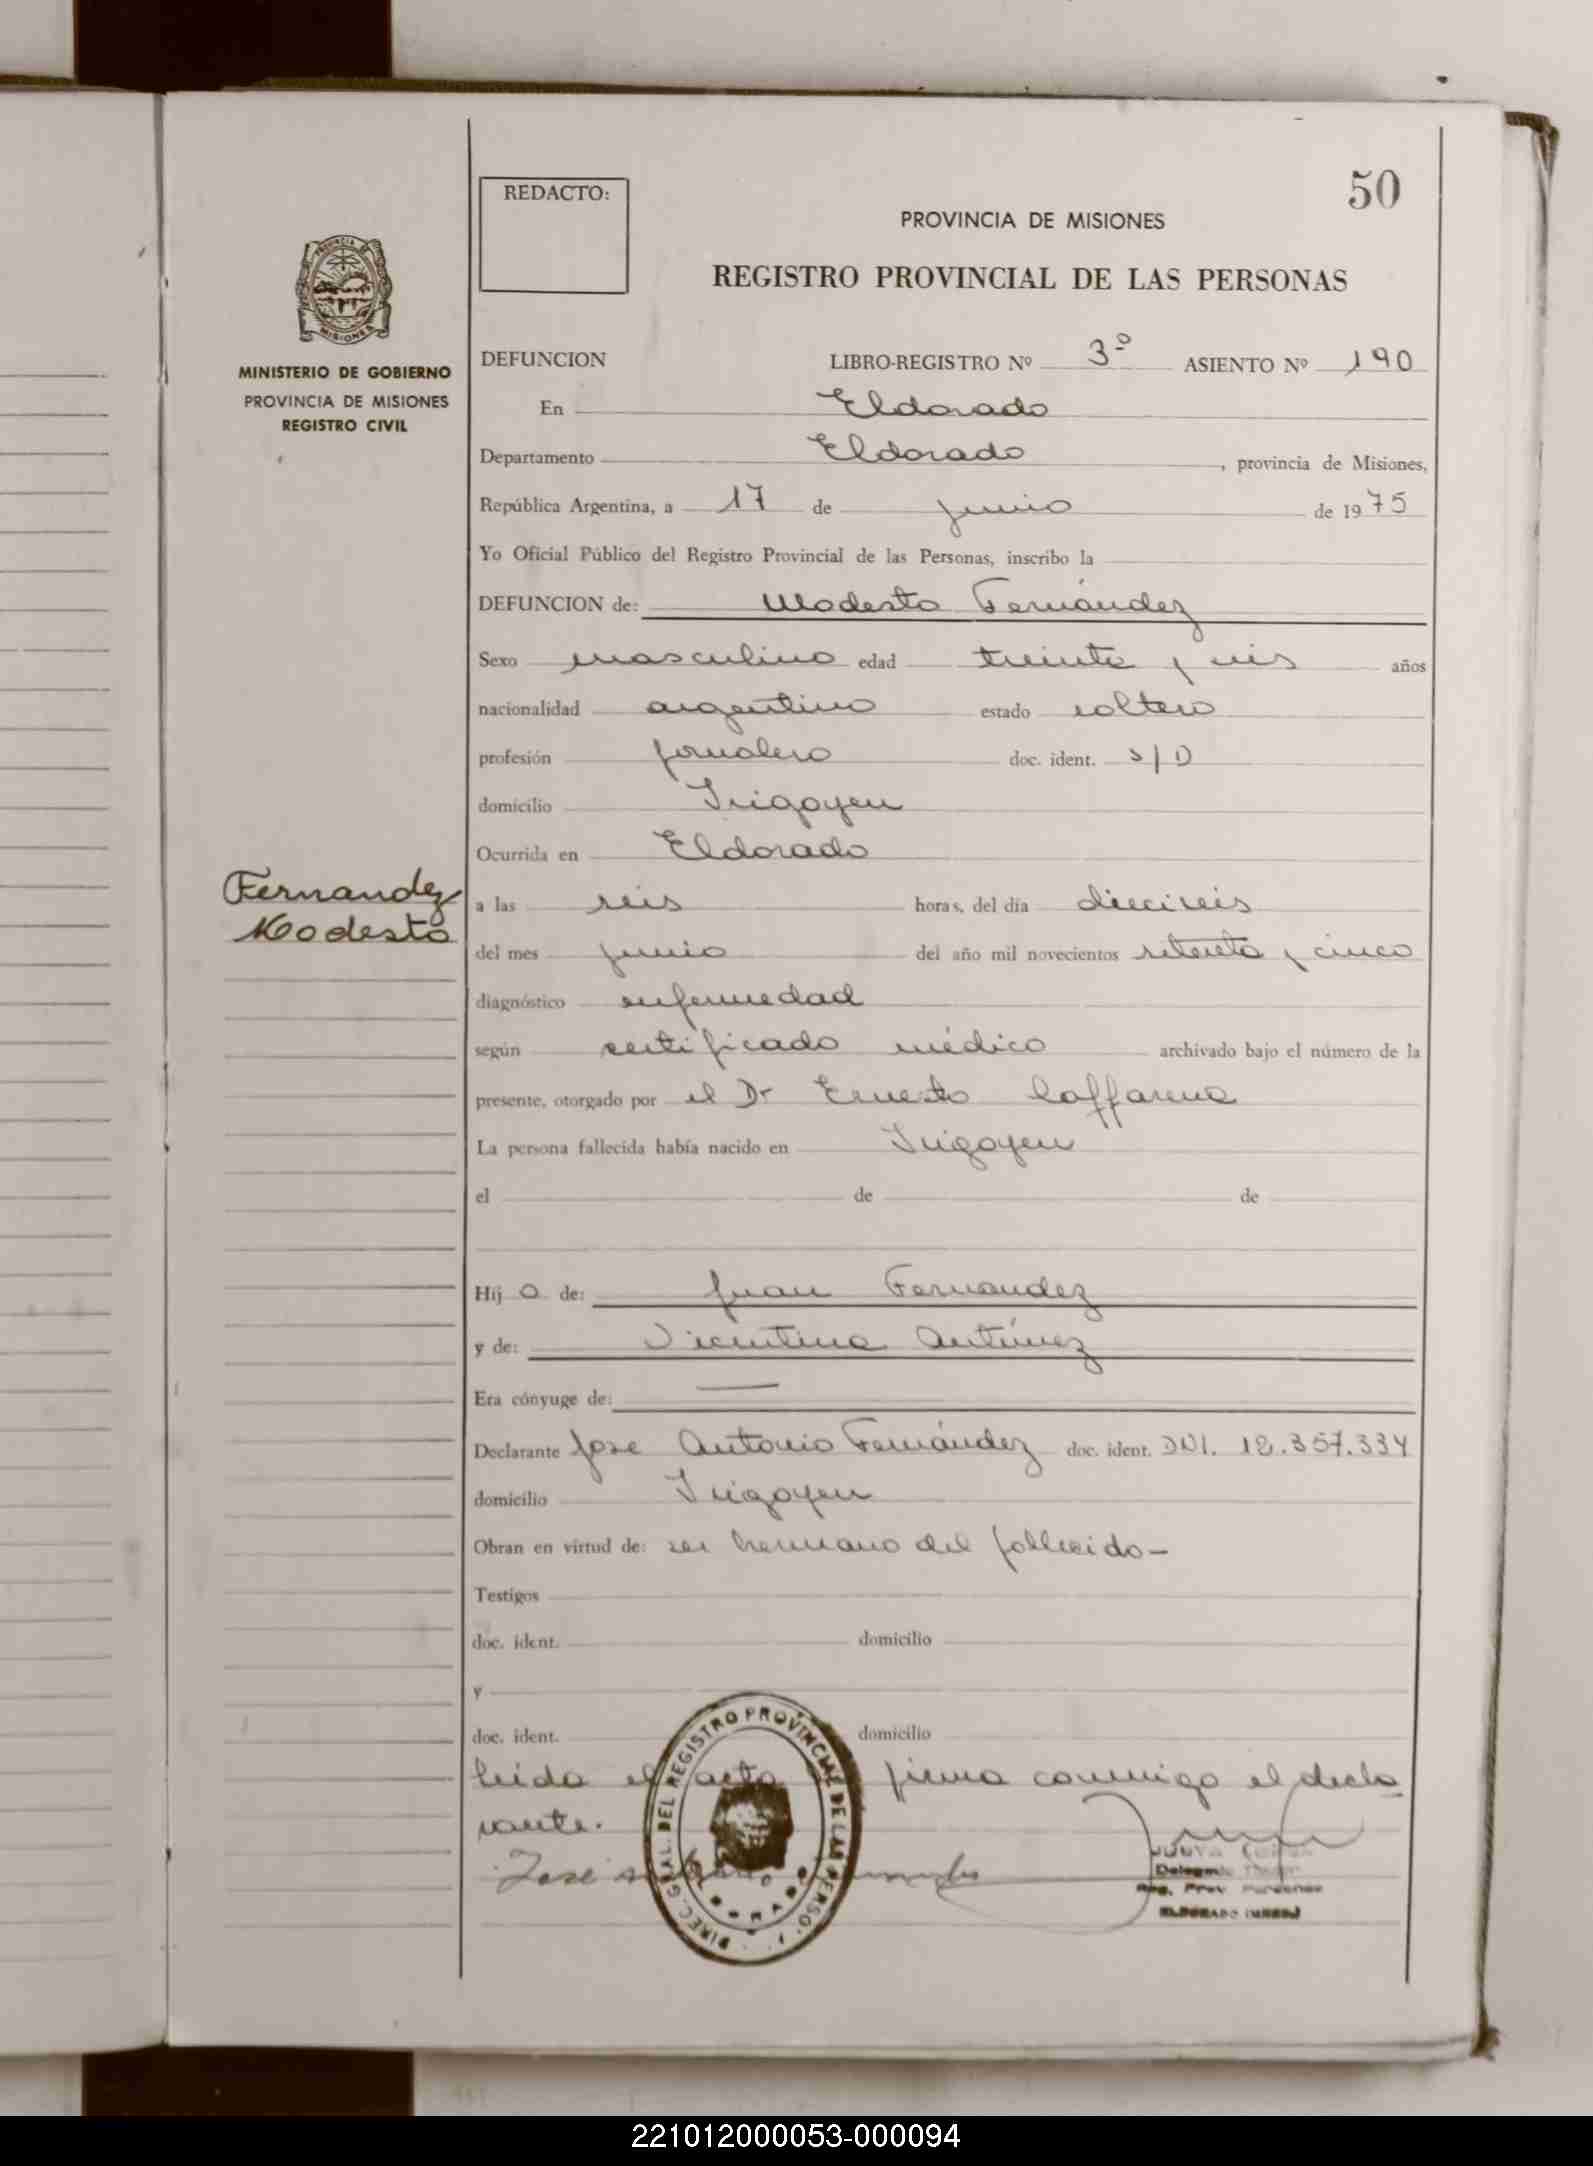 50
REDACTO:
PROVINCIA DE MISIONES
REGISTRO PROVINCIAL DE LAS PERSONAS
MINISTERIO DE GOBIERNO
PROVINCIA DE MISIONES
REGISTRO CIVIL
DEFUNCION LIBRO-REGISTRO Nº 3º ASIENTO Nº 190
En Eldorado
Departamento Eldorado, provincia de Misiones,
República Argentina, a 17 de junio de 1975
Yo Oficial Público del Registro Provincial de las Personas, inscribo la
DEFUNCION de: Modesto Fernández
Sexo masculino edad treinta y seis años
nacionalidad argentino estado soltero
profesión jornalero doc. ident. S/D
domicilio Irigoyen
Ocurrida en Eldorado
Fernandez
Modesto
a las seis horas, del día dieciseis
del mes junio del año mil novecientos setenta y cinco
diagnóstico enfermedad
según certificado médico archivado bajo el número de la
presente, otorgado por el Dr Ernesto
La persona fallecida había nacido en Irigoyen
el de de
Hijo de: Juan Fernandez
y de: Vicentina Antúnez
Era cónyuge de: —
Declarante Jose Antonio Fernández doc. ident. DNI. 12.357.334
domicilio Irigoyen
Obran en virtud de: ser hermano del fallecido-
Testigos
doc. ident. domicilio
y
doc. ident. domicilio
leida el acta firma conmigo el decla
rante.
Jose
DIREC. GRAL. DEL REGISTRO PROVINCIAL DE LAS PERSO
Delegado
Reg. Prov. Personas
ELDORADO
221012000053-000094